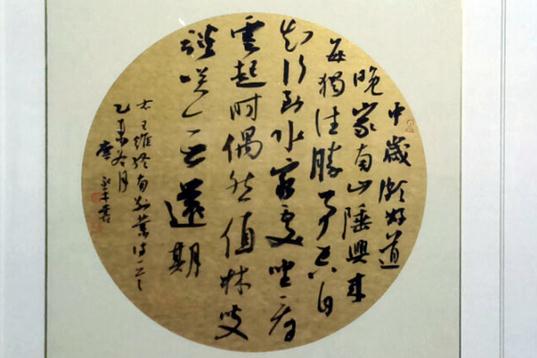 中歲頗好道
晚家南山陲興來
每獨往勝事空自
知行到水窮處坐看
雲起時偶然值林叟
談咲無還期
右王維終南別業詩
乙未冬月